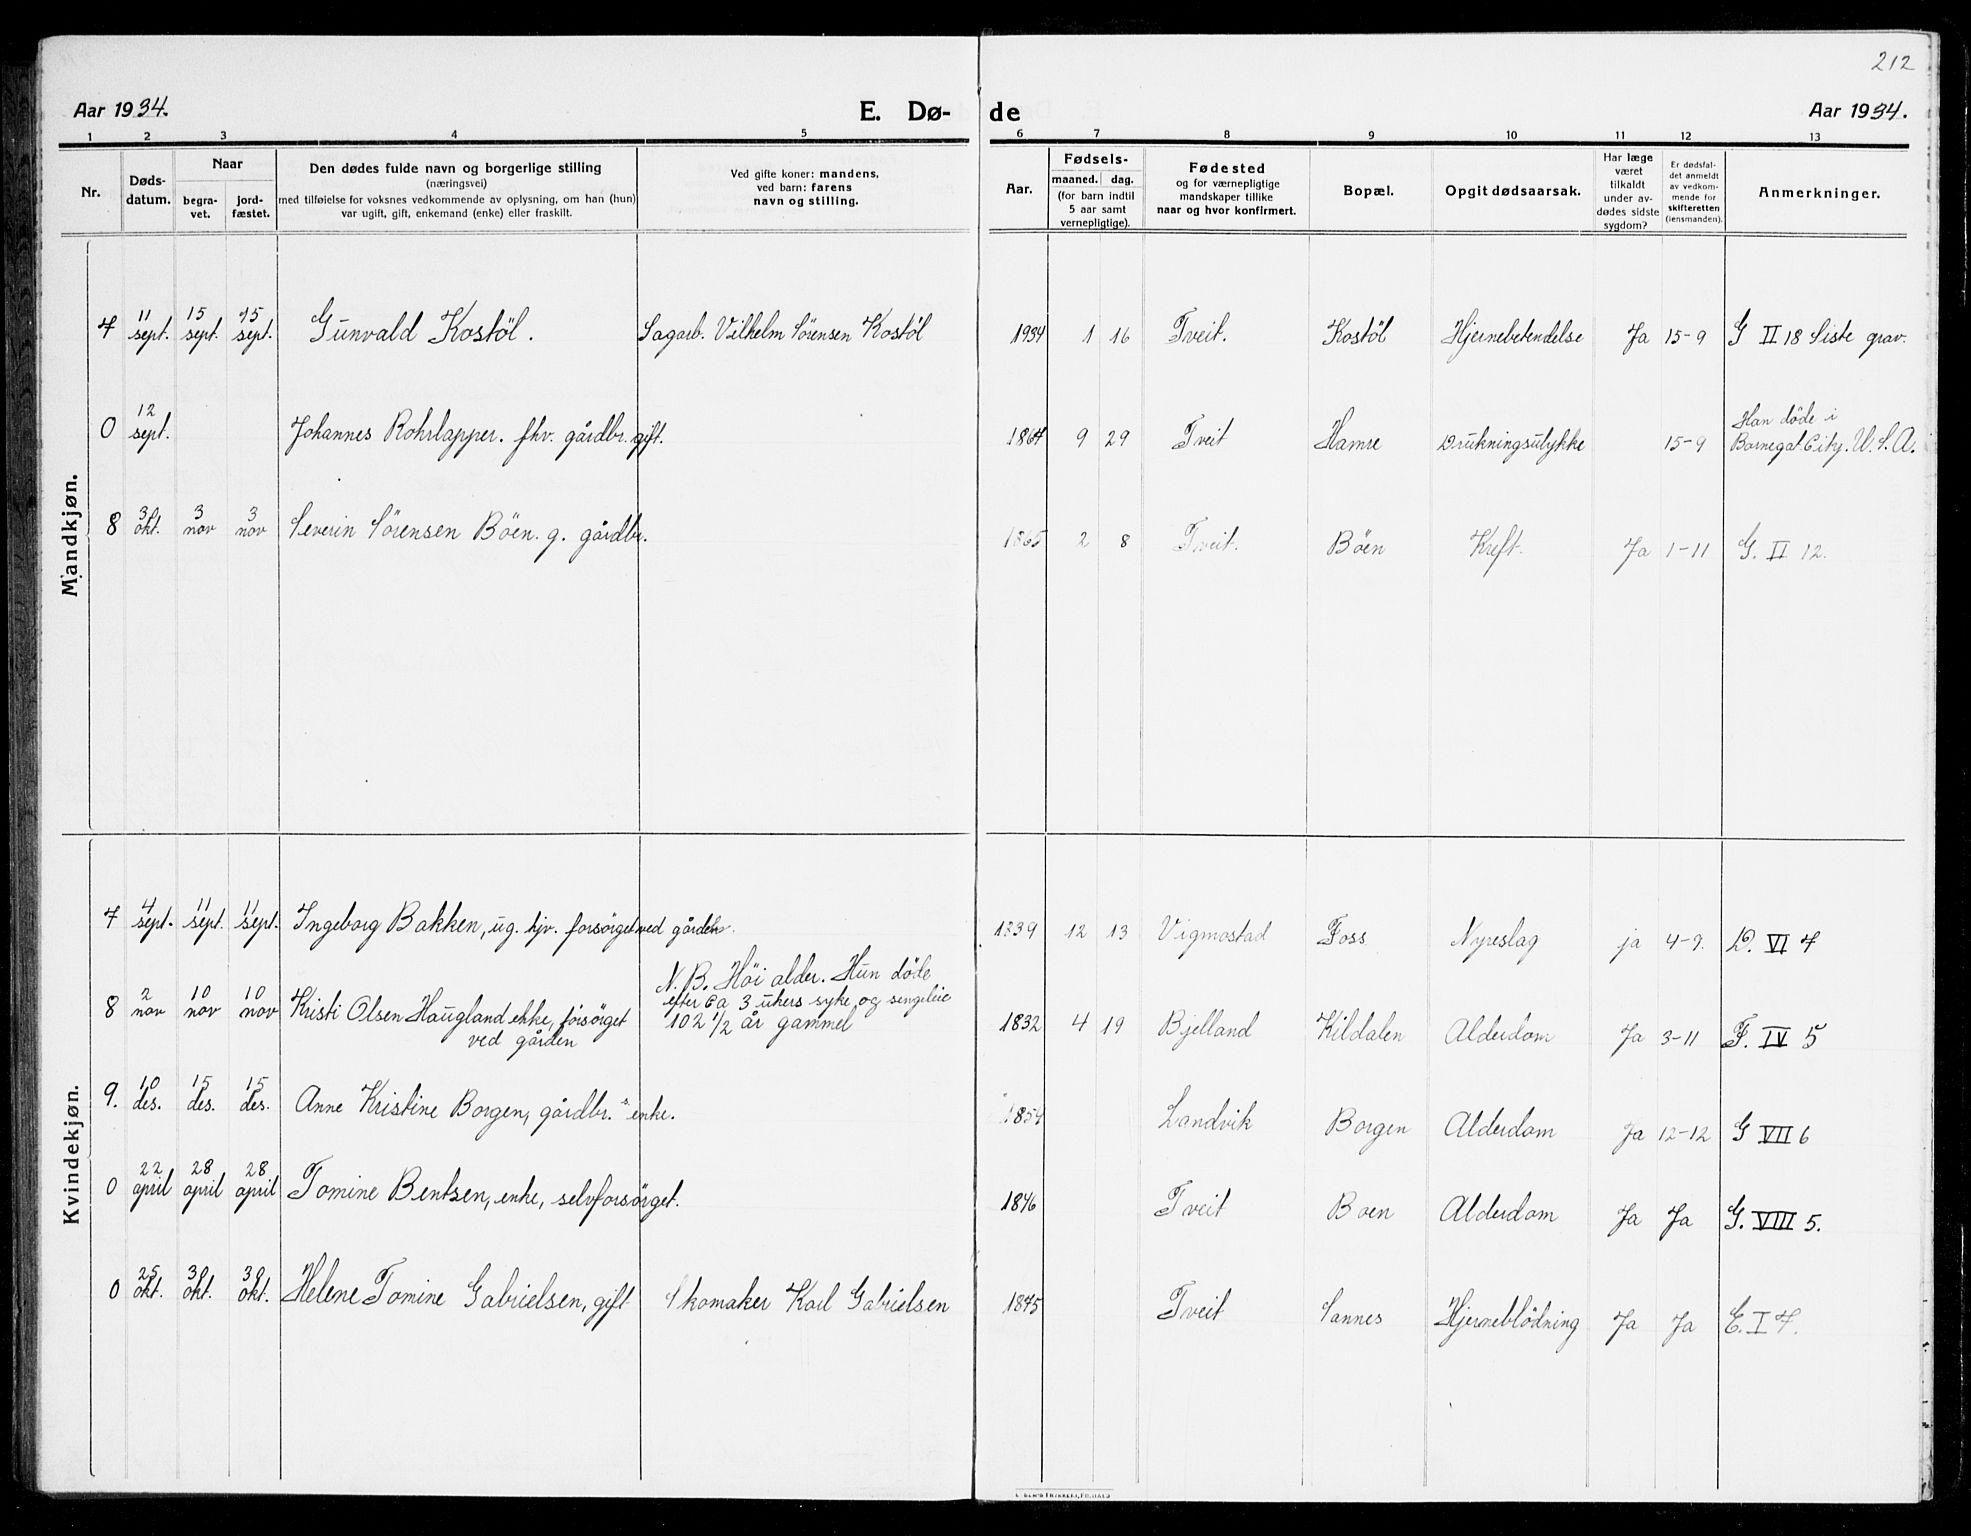 212
Aar 1934. E. Dø- de Aar 1934.
1 2 3 4 5 6 7 8 9 10 11 12 13
Nr.
Døds-
datum.
Naar
begra-
vet.
jord-
fæstet.
Den dødes fulde navn og borgerlige stilling
(næringsvei)
med tilføielse for voksnes vedkommende av oplysning, om han (hun)
var ugift, gift, enkemand (enke) eller fraskilt.
Ved gifte koner: mandens,
ved barn: farens
navn og stilling.
Aar.
Fødsels-
maaned. dag.
(for barn indtil
5 aar samt
vernepligtige).
Fødested
og for værnepligtige
mandskaper tillike
naar og hvor konfirmert.
Bopæl.
Opgit dødsaarsak.
Har læge
været
tilkaldt
under av-
dødes sidste
sygdom?
Er dødsfal-
det anmeldt
av vedkom-
mende for
skifteretten
(lensmanden).
Anmerkninger.
Mandkjøn.
7 11 sept. 15 sept. 15 sept. Gunvald Kostöl. Sagarb. Vilhelm Sörensen Kostöl 1934 1 16 Tveit. Kostöl Hjernebetendelse Ja 15-9 G II 18 Siste grav.
0 12 sept. Johannes Rohrlapper. fhv. gårdbr. gift. 1864 9 29 Tveit Hamre Drukningsulykke 15-9 Han döde i
Barnegat City. U.S.A.
8 30 okt. 3 nov 3 nov Severin Sörensen Böen. g. gårdbr. 1865 2 8 Tveit. Böen Kreft. Ja 1-11 G. II 12.
Kvindekjøn.
7 4 sept. 11 sept. 11 sept. Ingeborg Bakken, ug. hjv. forsörget ved gården. 1839 12 13 Vigmostad Foss Nyreslag ja 4-9. D. VI 7
8 2 nov 10 nov 10 nov Kristi Olsen Haugland enke, forsörget
ved gården
N.B. Höi alder. Hun döde
efter ca 3 ukers syke og sengeleie
102 1/2 år gammel
1832 4 19 Bjelland Kildalen Alderdom Ja 3-11 F. IV 5
9. 10 des. 15 des. 15 des. Anne Kristine Borgen, gårdbr.s enke. 1854 Landvik Borgen Alderdom Ja 12-12 G VII 6
0 22 april 28 april 28 april Tomine Bentsen, enke, selvforsörget. 1846 Tveit Boen Alderdom Ja Ja G. VIII 5.
0 25 okt. 30 okt. 30 okt. Helene Tomine Gabrielsen, gift Skomaker Karl Gabrielsen 1845 Tveit Sannes Hjerneblödning Ja Ja E. I 7.